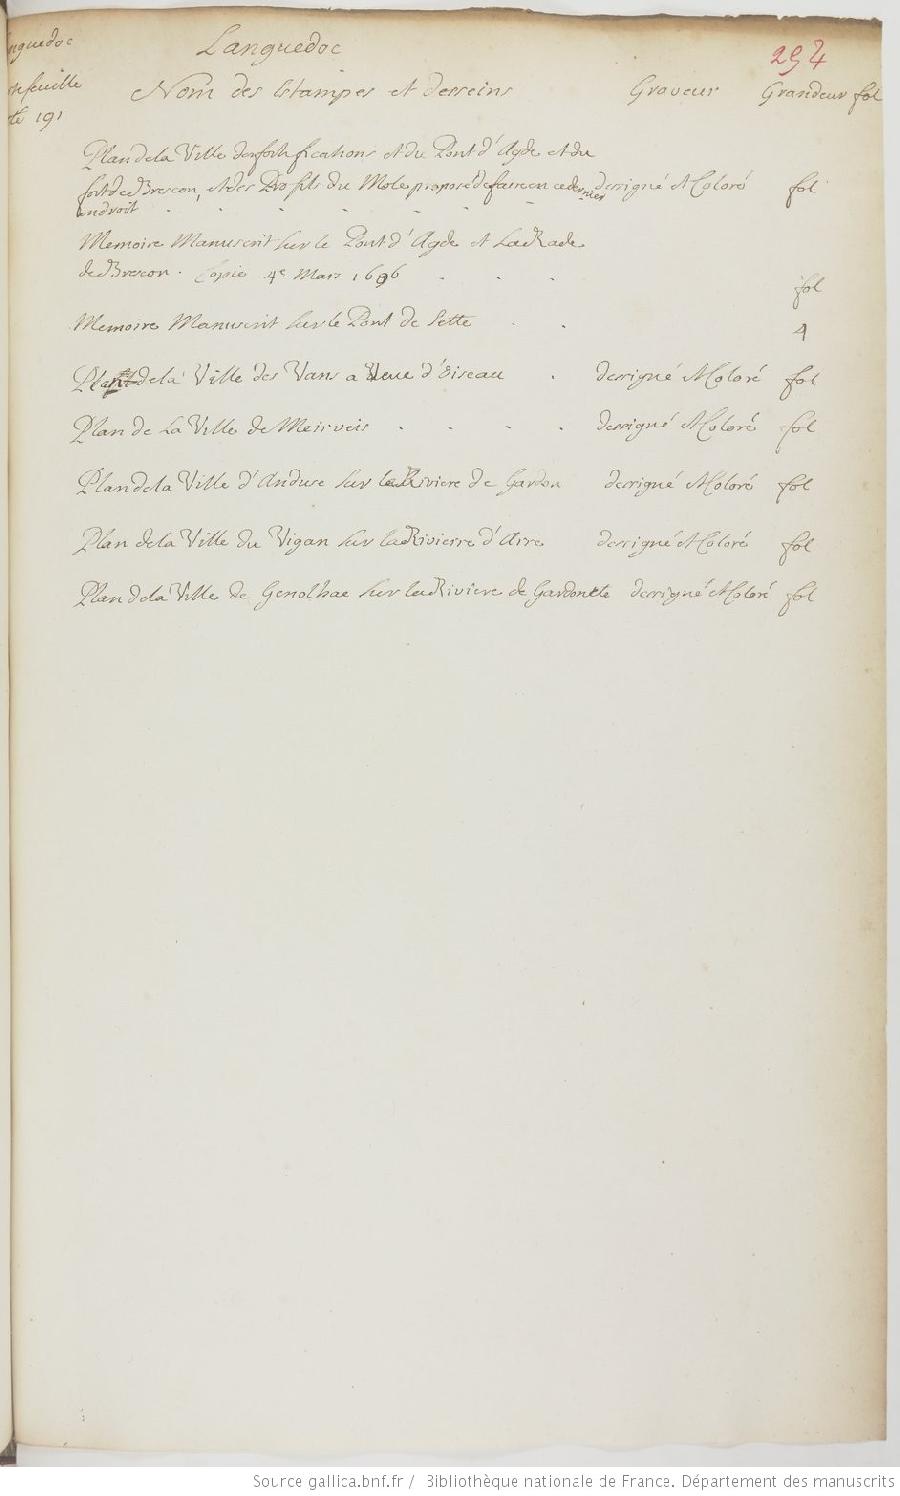 nguedoc
Languedoc
254
feuille
Nom des Estampes et desseins Graveur Grandeur fol
191
Plan de la Ville des fortifications et du Pont d'Agde et du
fort de Brescon, et des Profils du Mole proposé de faire en ce dernier dessigné et Coloré fol
endroit
Memoire Manuscrit sur le Pont d'Agde et La Rade
de Brescon. Copie 4e Mars 1696 fol
Memoire Manuscrit sur le Pont de Sette 4
Plan de la Ville des Vans a Veue d'Oiseau dessigné et Coloré fol
Plan de La Ville de Meirveis dessigné et Coloré fol
Plan de la Ville d'Anduse sur la Riviere de Gardon dessigné et Coloré fol
Plan de la Ville du Vigan sur la Rivierre d'Arre dessigné et Coloré fol
Plan de la Ville de Genolhac sur la Riviere de Gardonete dessigné et Coloré fol
Source gallica.bnf.fr / Bibliothèque nationale de France. Département des manuscrits